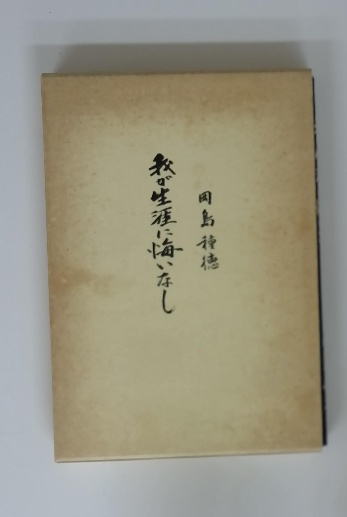 我が生涯に悔いなし
岡島種徳